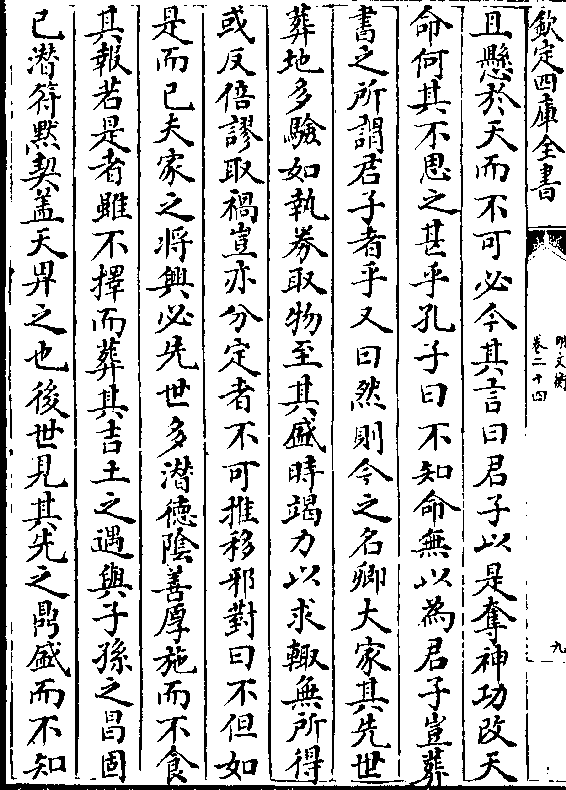 欽定四庫全書
明文衡
卷二十四
九
且懸於天而不可必今其言曰君子以是奪神功改天
命何其不思之甚乎孔子曰不知命無以為君子豈葬
書之所謂君子者乎又曰然則今之名卿大家其先世
葬地多驗如執券取物至其盛時竭力以求輙無所得
或反倍謬取禍豈亦分定者不可推移邪對曰不但如
是而已夫家之將興必先世多潜德陰善厚施而不食
其報若是者雖不擇而葬其吉土之遇與子孫之昌固
已潜符黙契葢天畀之也後世見其先之鼎盛而不知